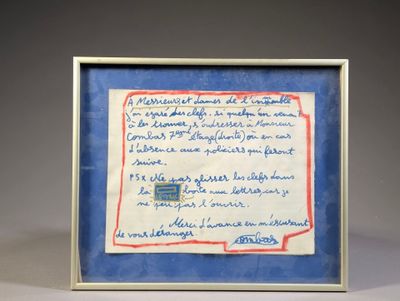 A Messieurs et dames de l'immeuble
j'ai égaré des clefs, si quelqu'un venait
à les trouver, s'adresser à Monsieur
Combas 7ème étage (droite) où en cas
d'absence aux policiers qui feront
suivre.
P.S x Ne pas glisser les clefs dans
la boite aux lettres, car je
ne peu pas l'ouvrir.
Merci d'avance en m'éxcusant
de vous déranger
Combas